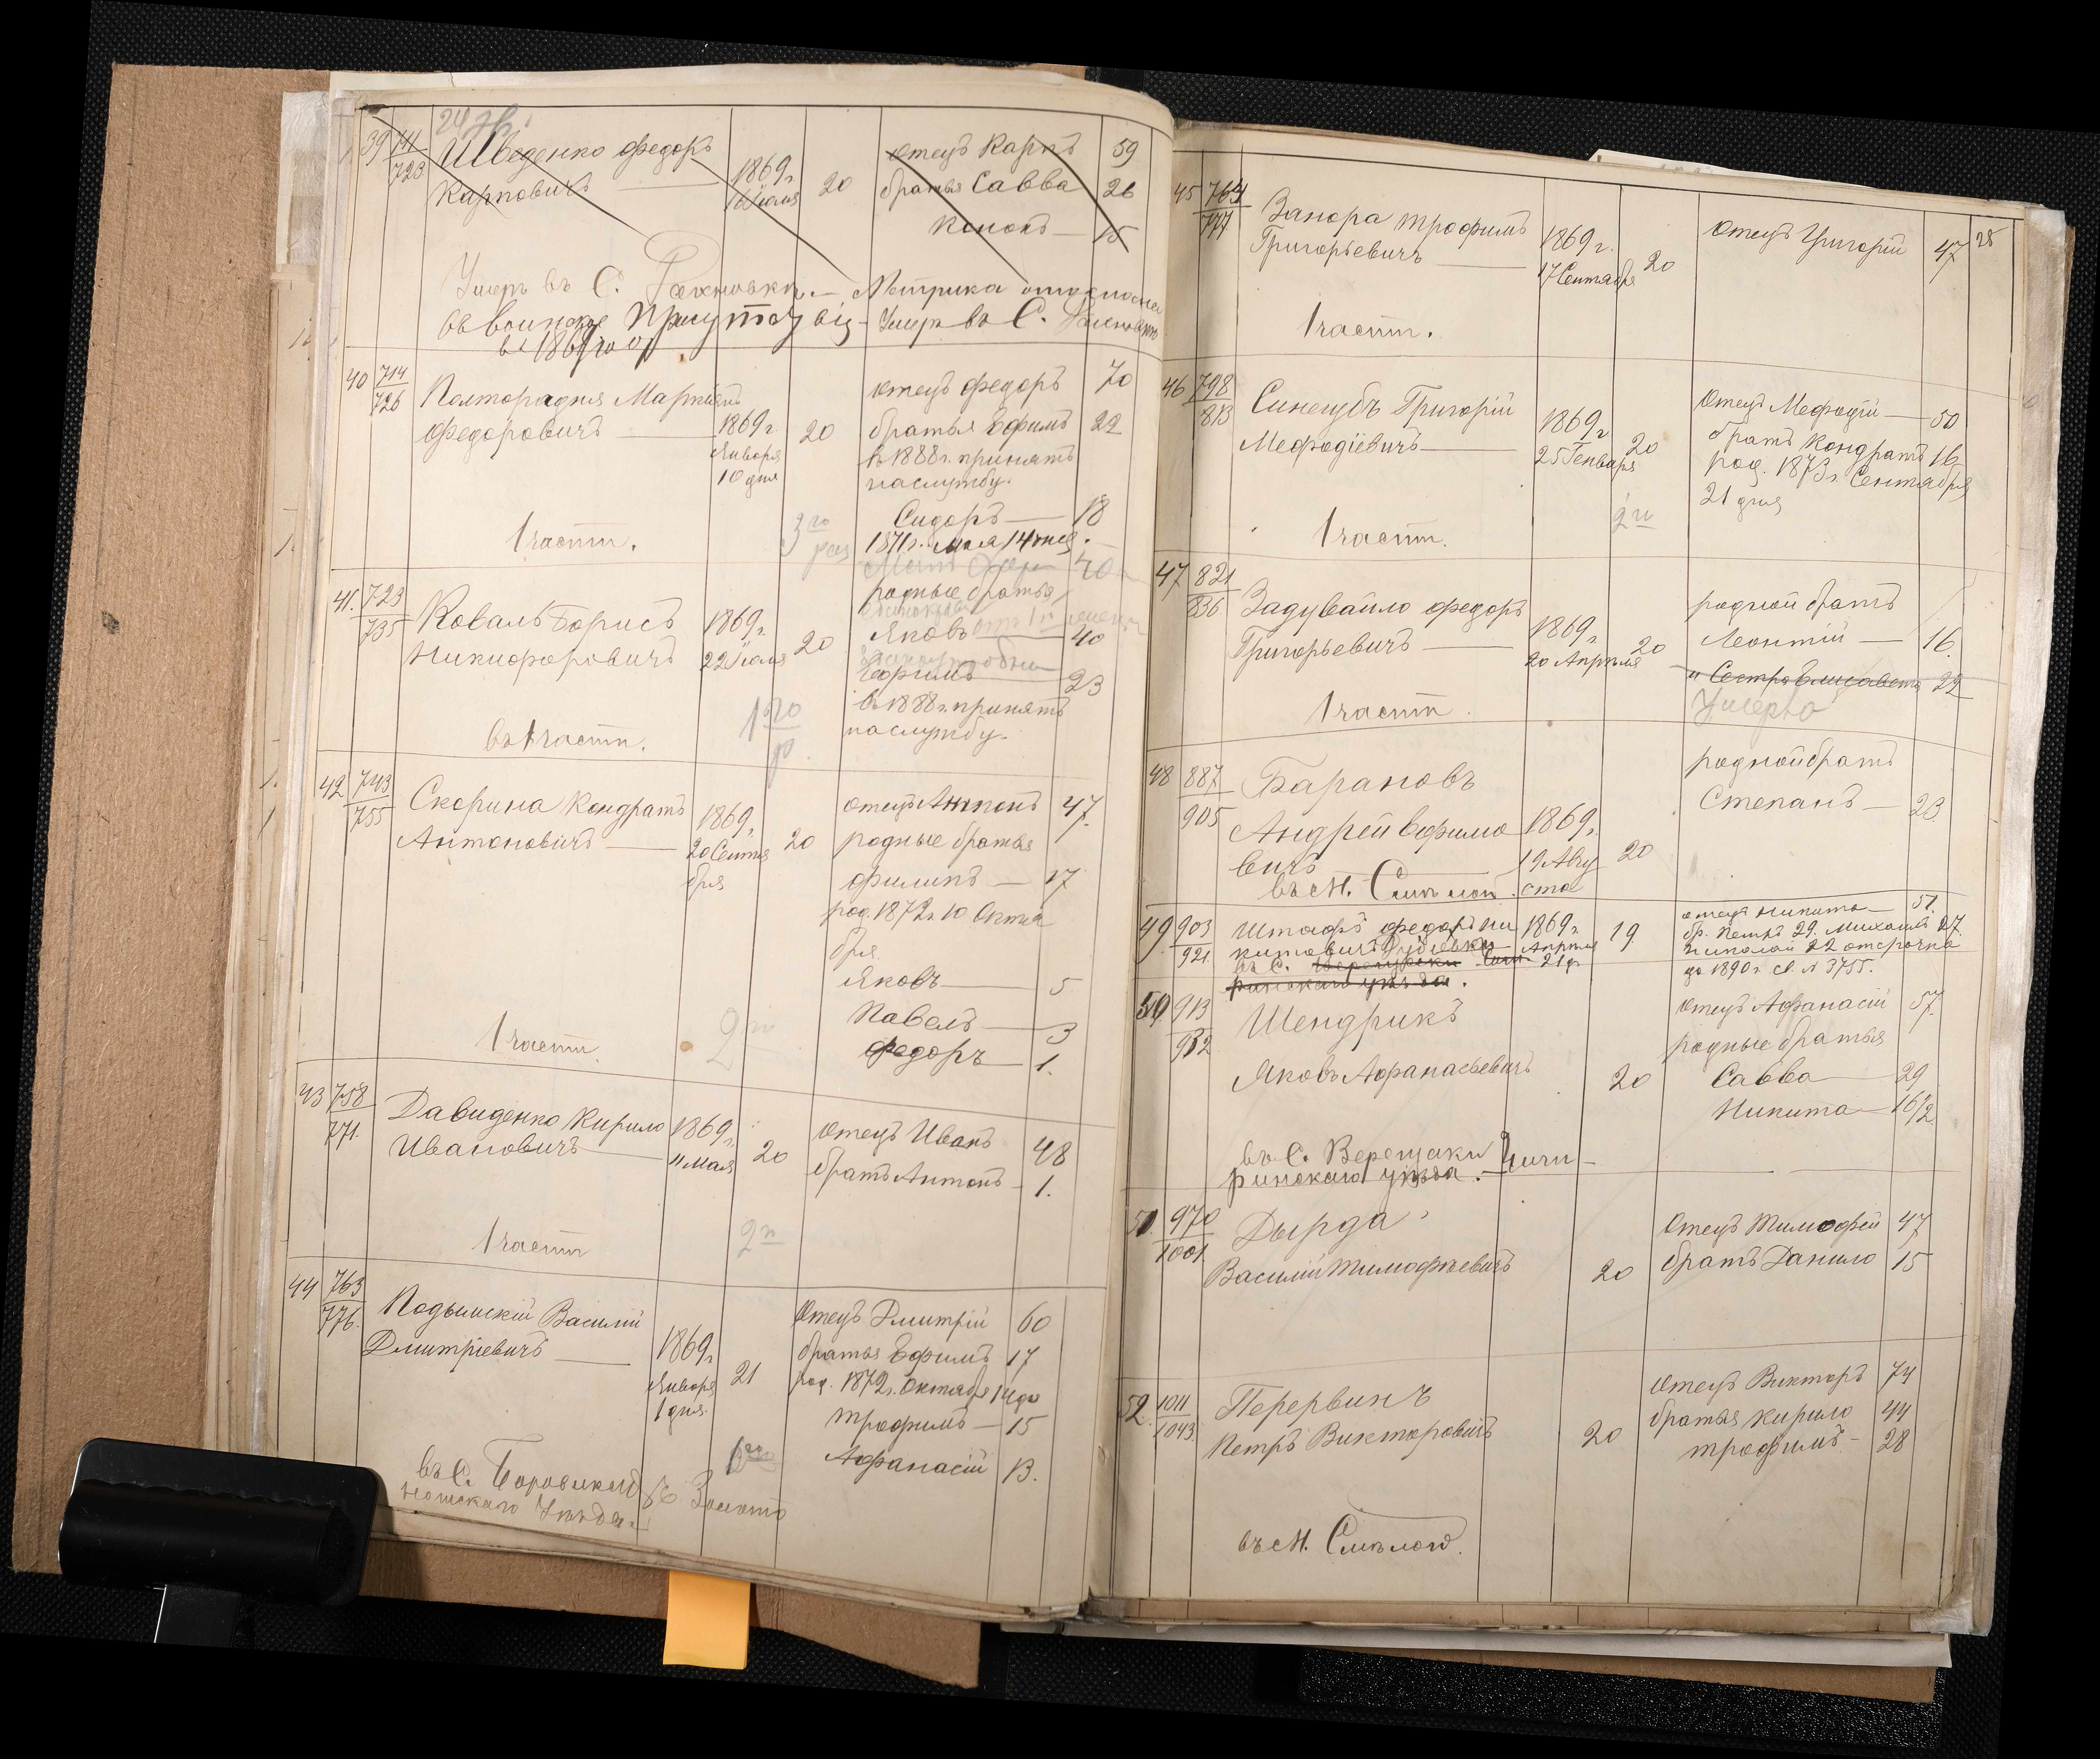 39 711/723 Шведенко Федоръ
Карповичъ — 1869 г. 16 Іюля 20
отецъ Карпъ 59
братья Савва 26
Кононъ — 15
Умеръ въ С. — Метрика
въ воинское — Умеръ въ С.
въ 1869 году
40 714/726 Полторадня Мартынъ
Федоровичъ — 1869 г. Января 10 дня 20
отецъ Федоръ 70
братья Ефимъ 22
въ 1888 г. принятъ
на службу.
Сидоръ — 18
1871 г. мая 14 дня.
3го раз
1 части.
41. 723/735 Коваль Борисъ
Никифоровичъ 1869 г. 22 Іюля 20
родные братья
Яковъ 40
Ефимъ 23
въ 1888 г. принятъ
на службу.
1го р
въ 1 части.
42 743/755 Скорина Кондратъ
Антоновичъ — 1869 г. 20 Сентября 20
отецъ Антонъ 47.
родные братья
Филипъ — 17
род. 1872 г. 10 Октября
Яковъ — 5
Павелъ — 3
Федоръ — 1.
2
1 части.
43 758/771. Давиденко Кирило
Ивановичъ — 1869 г. 11 Мая 20
отецъ Иванъ 48
братъ Антонъ — 1.
2
1 части
44 763/776. Подымскій Василій
Дмитріевичъ — 1869 г. Января 1 дня. 21
Отецъ Дмитрій 60
братья Ефимъ 17
род. 1872 г. Октября 14 д
Трофимъ — 15
Афанасій 13.
въ С. Золотоношскаго Уѣзда.
28
45 764/777 Занора Трофимъ
Григорьевичъ — 1869 г. 17 Сентября 20
Отецъ Григорій 47
1 части.
46 798/813 Синегубъ Григорій
Мефодіевичъ — 1869 г. 25 Генваря 20
Отецъ Мефодій — 50
братъ Кондратъ 16
род. 1873 г. Сентября
21 дня
2
1 части.
47 821/836 Задувайло Федоръ
Григорьевичъ — 1869 г. 20 Апрѣля 20
родной братъ
Леонтій — 16.
" Сестра Елисавета 22
Умерла
1 части.
48 887/905 Барановъ
Андрей Ефимовичъ 1869 г. 19 Августа 20
родной братъ
Степанъ — 23
въ м.
49 903/921. Штафъ Федоръ Никитовичъ 1869 г. Апрѣля 21 д. 19
отецъ Никита — 51.
бр. Петръ 29. Михаилъ 27.
Николай 22 отсрочка
до 1890 г. св. № 3755.
въ С.
50 913/932 Шендрикъ
Яковъ Афанасьевичъ 20
Отецъ Афанасій 57.
родные братья
Савва — 29
Никита — 16/2
въ С. Верещаки Чиги-
ринскаго уѣзда.
51. 970/1001 Дырда
Василій Тимофѣевичъ 20
Отецъ Тимофей 47
братъ Данило 15
52. 1011/1043. Перервинъ
Петръ Викторовичъ 20
отецъ Викторъ 74
братья Кирило 44
Трофимъ — 28
въ м. Смѣлой.